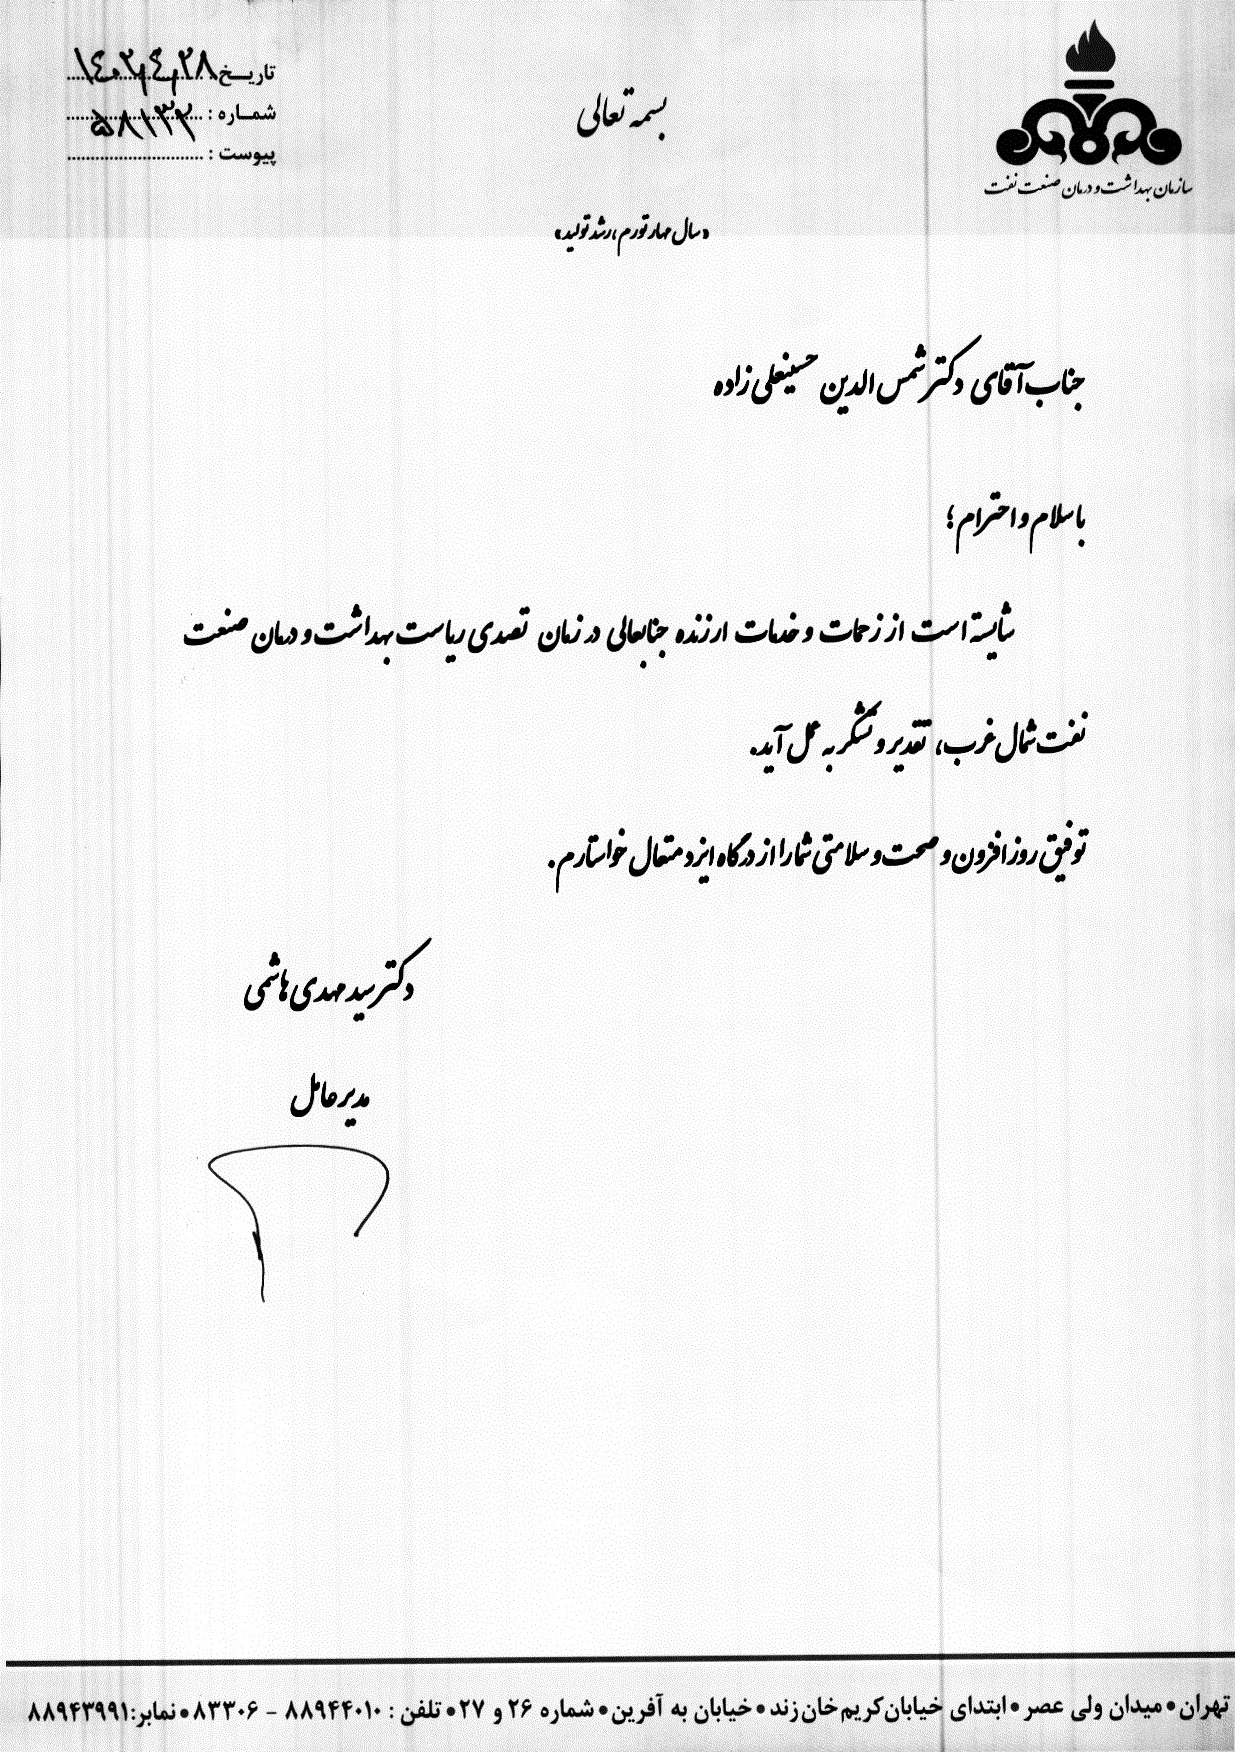 تاریخ ۱۴۰۲/۴/۲۸
شماره : ۵۸۱۳۲
پیوست :
بسمه تعالی
سازمان بهداشت و درمان صنعت نفت
«سال مهار تورم، رشد تولید»
جناب آقای دکتر شمس الدین حسینعلی زاده
با سلام و احترام؛
شایسته است از زحمات و خدمات ارزنده جنابعالی در زمان تصدی ریاست بهداشت و درمان صنعت
نفت شمال غرب، تقدیر و تشکر به عمل آید.
توفیق روز افزون و صحت و سلامتی شما را از درگاه ایزد متعال خواستارم.
دکتر سید مهدی هاشمی
مدیر عامل
تهران • میدان ولی عصر • ابتدای خیابان کریم خان زند • خیابان به آفرین • شماره ۲۶ و ۲۷ • تلفن : ۸۸۹۴۴۰۱۰ - ۸۳۳۰۶ • نمابر:۸۸۹۴۳۹۹۱